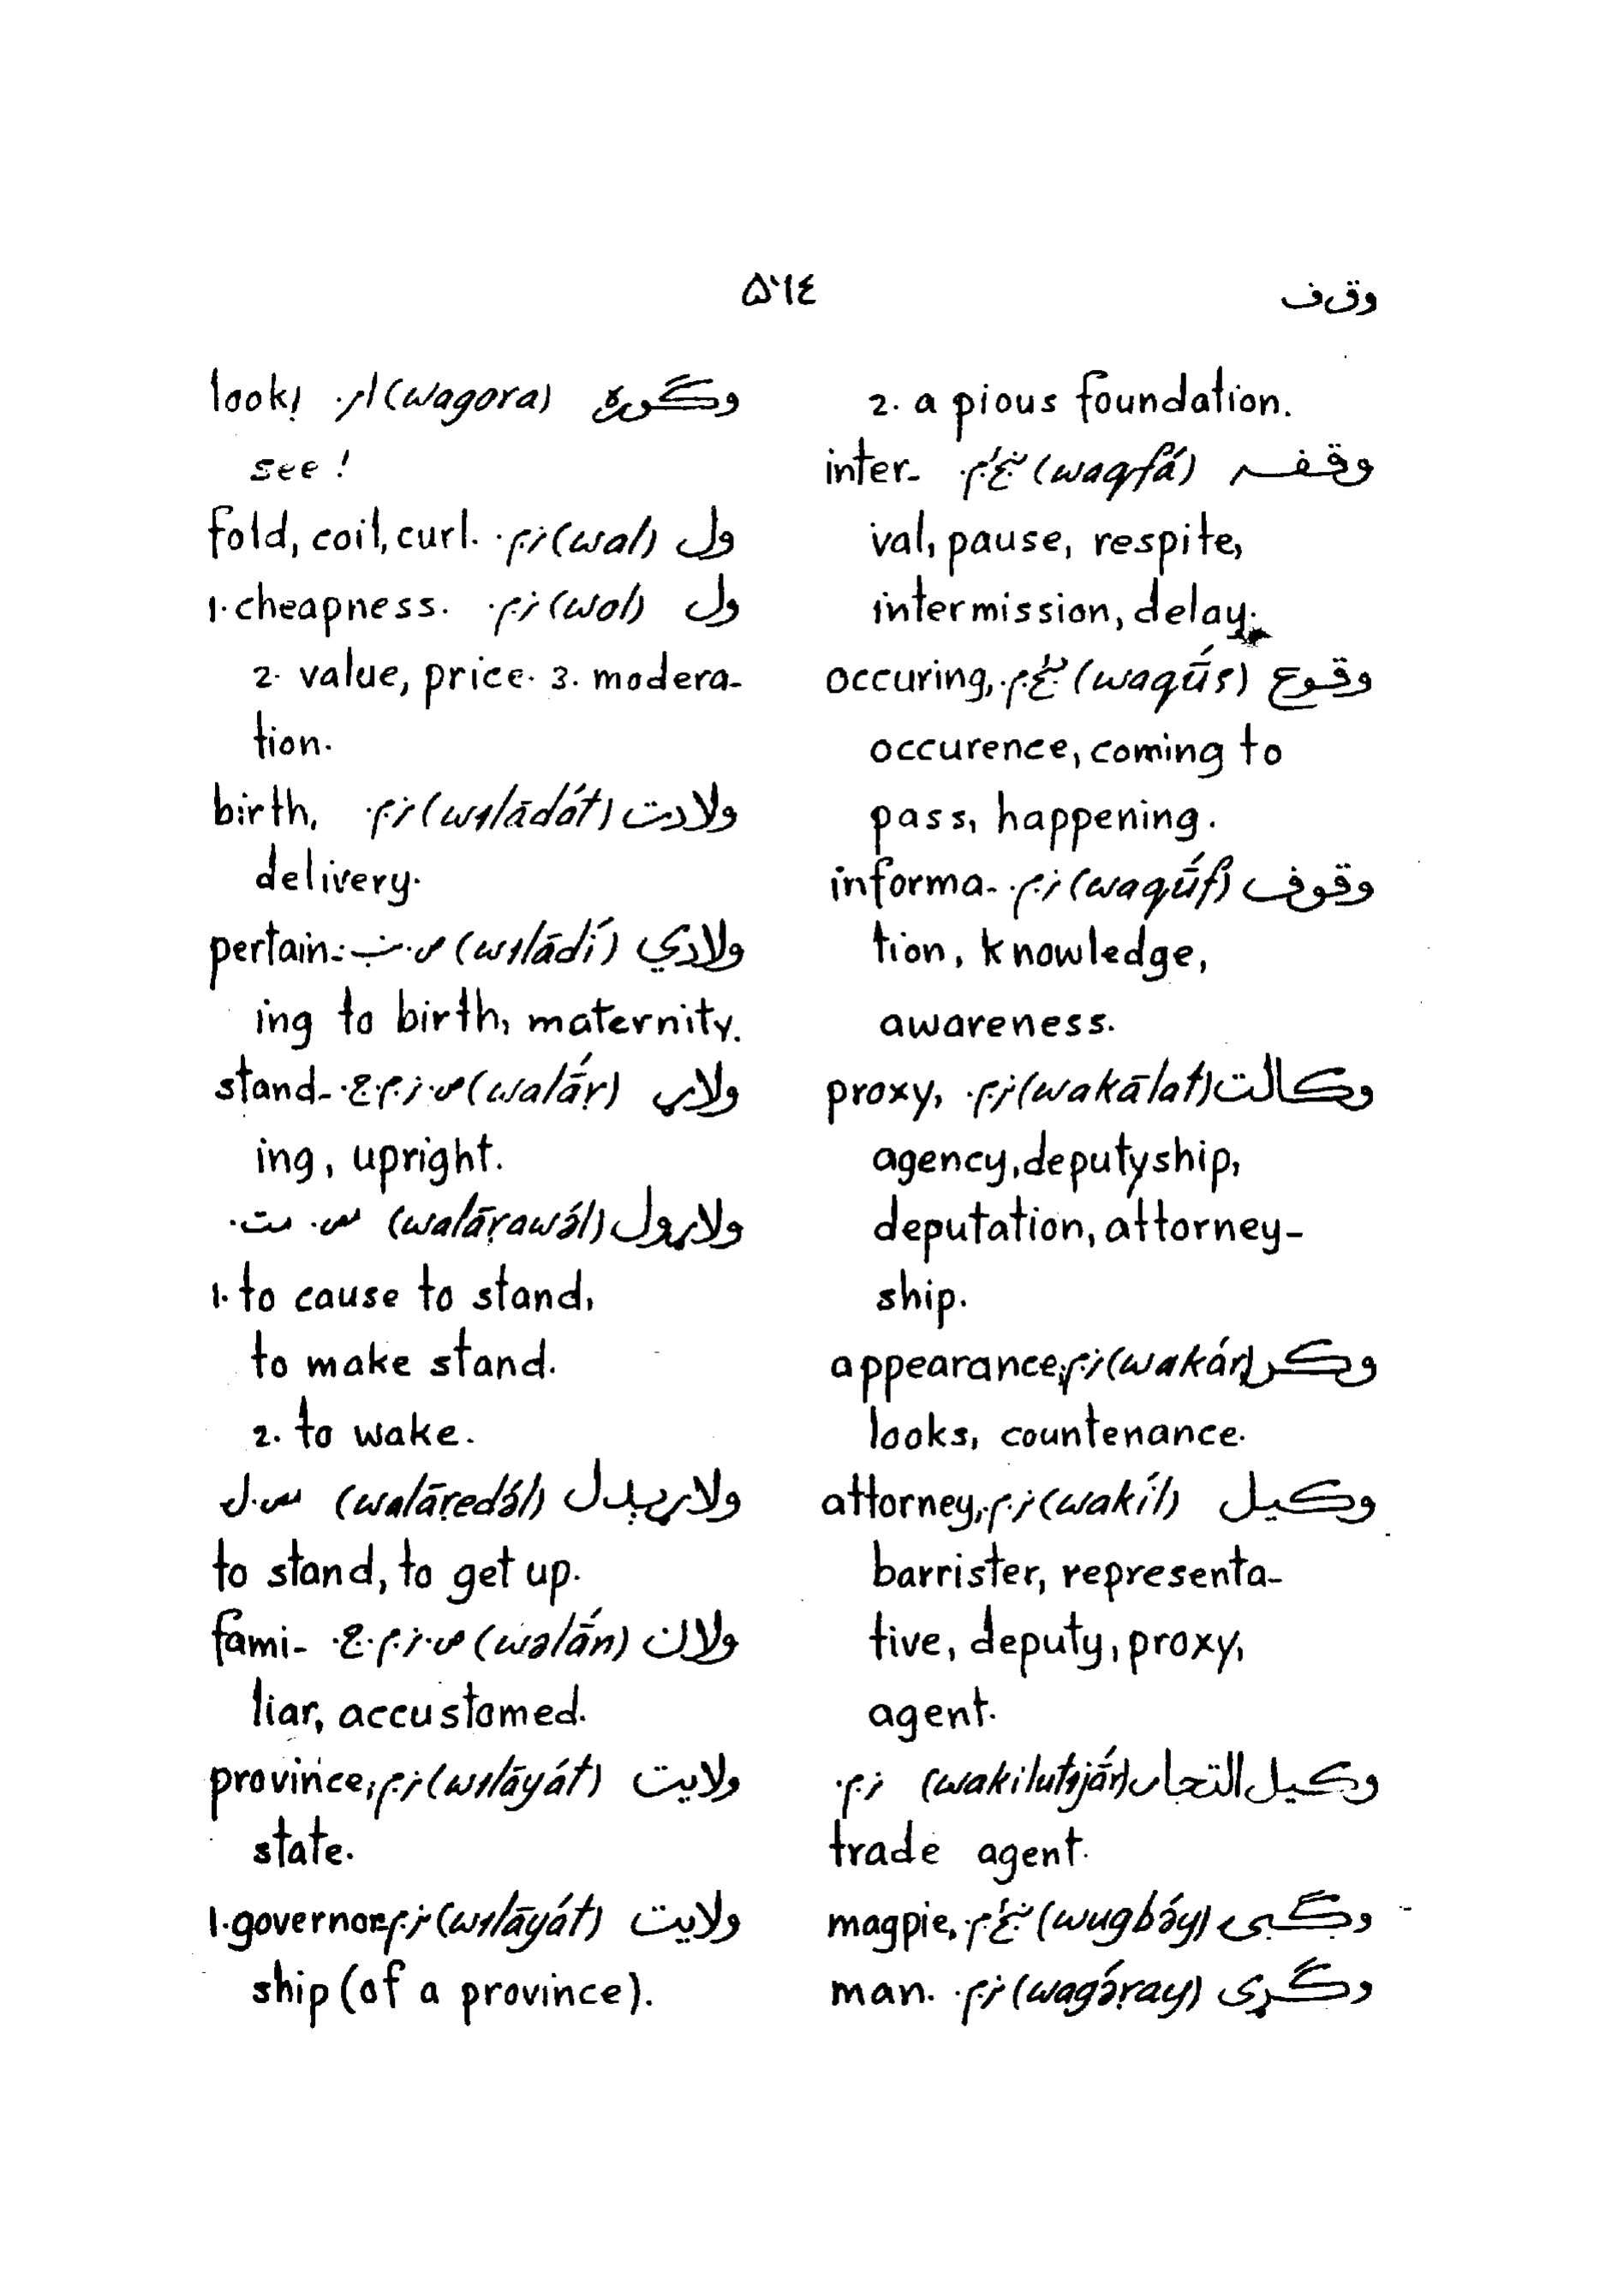 وقف ۵٦٤
2. a pious foundation.
وقفه (waqfá) inter-
val, pause, respite,
intermission, delay.
وقوع (waqū́ʕ) occuring,
occurence, coming to
pass, happening.
وقوف (waqū́f) ز.م. informa-
tion, knowledge,
awareness.
وکالت (wakālat) ز.م. proxy,
agency, deputyship,
deputation, attorney-
ship.
وکر (wakár) ز.م. appearance,
looks, countenance.
وکیل (wakíl) ز.م. attorney,
barrister, representa-
tive, deputy, proxy,
agent.
وکیل التجار (wakilutɘjā́r) ز.م.
trade agent.
وګبۍ (wugbə́y) magpie,
وګړی (wagə́ṛay) ز.م. man.
وګوره (wagora) ار. look!
see!
ول (wal) ز.م. fold, coil, curl.
ول (wol) ز.م. 1. cheapness.
2. value, price. 3. modera-
tion.
ولادت (wɪlādát) ز.م. birth,
delivery.
ولادي (wɪlādí) ص. ن. pertain-
ing to birth, maternity.
ولاړ (walā́ṛ) ص. ز.م. ج. stand-
ing, upright.
ولاړول (walāṛawə́l) س. مت.
1. to cause to stand,
to make stand.
2. to wake.
ولاړېدل (walāṛedə́l) س. ل
to stand, to get up.
ولان (wəlā́n) ص. ز.م. ج. fami-
liar, accustomed.
ولایت (wɪlāyát) ز.م. province,
state.
ولایت (wɪlāyát) ز.م. 1. governor-
ship (of a province).